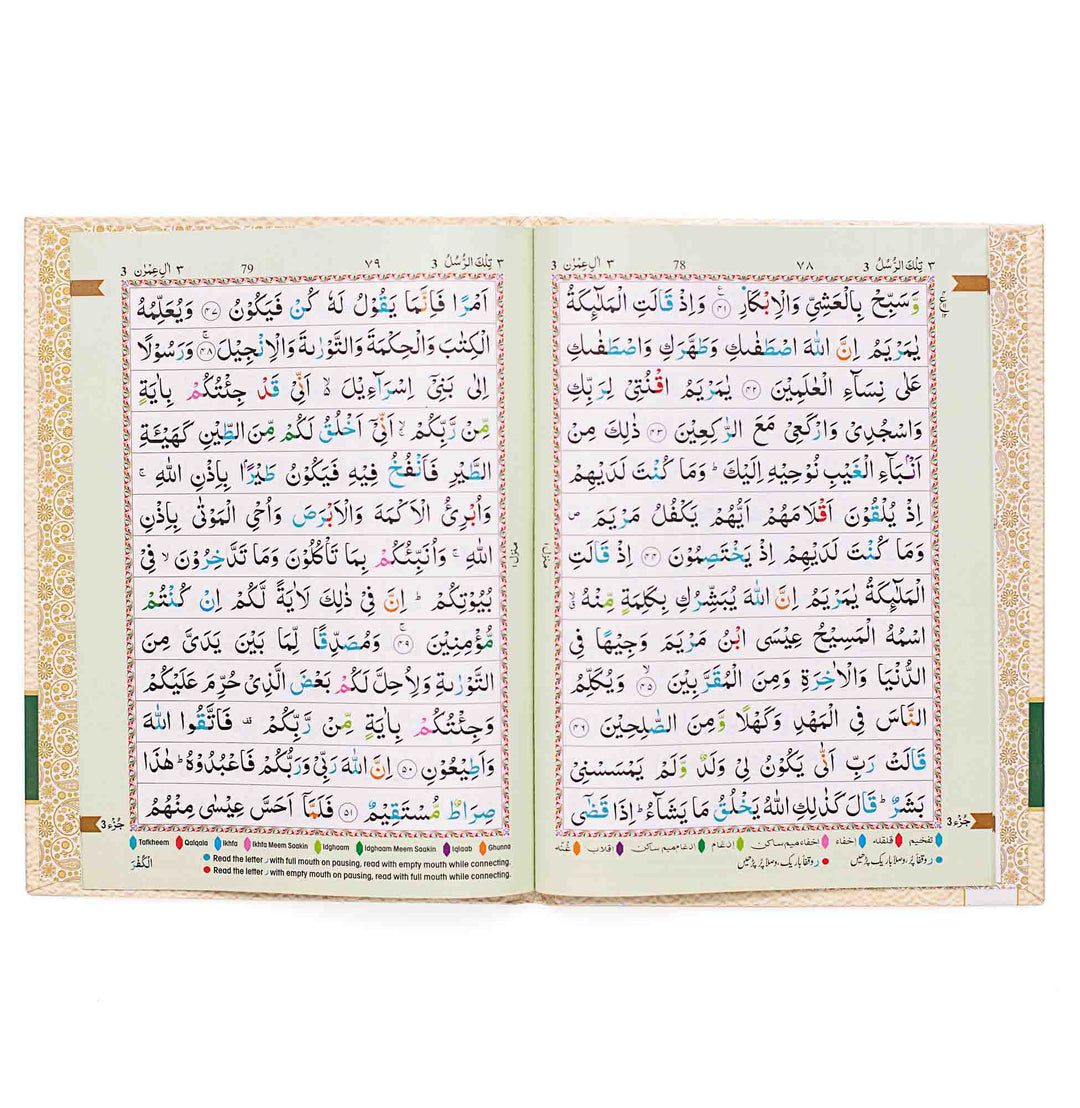 ٣ تِلْكَ الرُّسُلُ 3
٧٨
78
٣ اٰلِ عِمْرٰن 3
وَّسَبِّحْ بِالْعَشِیِّ وَالْاِبْكَارِ ﴿۴۱﴾ وَاِذْ قَالَتِ الْمَلٰٓئِكَةُ
یٰمَرْیَمُ اِنَّ اللّٰهَ اصْطَفٰىكِ وَطَهَّرَكِ وَاصْطَفٰىكِ
عَلٰی نِسَآءِ الْعٰلَمِیْنَ ﴿۴۲﴾ یٰمَرْیَمُ اقْنُتِیْ لِرَبِّكِ
وَاسْجُدِیْ وَارْكَعِیْ مَعَ الرّٰكِعِیْنَ ﴿۴۳﴾ ذٰلِكَ مِنْ
اَنْۢبَآءِ الْغَیْبِ نُوْحِیْهِ اِلَیْكَ ؕ وَمَا كُنْتَ لَدَیْهِمْ
اِذْ یُلْقُوْنَ اَقْلَامَهُمْ اَیُّهُمْ یَكْفُلُ مَرْیَمَ ۪
وَمَا كُنْتَ لَدَیْهِمْ اِذْ یَخْتَصِمُوْنَ ﴿۴۴﴾ اِذْ قَالَتِ
الْمَلٰٓئِكَةُ یٰمَرْیَمُ اِنَّ اللّٰهَ یُبَشِّرُكِ بِكَلِمَةٍ مِّنْهُ ۖۗ
اسْمُهُ الْمَسِیْحُ عِیْسَی ابْنُ مَرْیَمَ وَجِیْهًا فِی
الدُّنْیَا وَالْاٰخِرَةِ وَمِنَ الْمُقَرَّبِیْنَ ﴿ۙ۴۵﴾ وَیُكَلِّمُ
النَّاسَ فِی الْمَهْدِ وَكَهْلًا وَّمِنَ الصّٰلِحِیْنَ ﴿۴۶﴾
قَالَتْ رَبِّ اَنّٰی یَكُوْنُ لِیْ وَلَدٌ وَّلَمْ یَمْسَسْنِیْ
بَشَرٌ ؕ قَالَ كَذٰلِكِ اللّٰهُ یَخْلُقُ مَا یَشَآءُ ؕ اِذَا قَضٰۤی
جُزْء 3
تفخیم قلقله إخفاء اخفاء میم ساکن إدغام ادغام میم ساکن اقلاب غُنّه
ر وقفاً پُر، وصلاً باریک پڑھیں ر وقفاً باریک، وصلاً پُر پڑھیں
٣ تِلْكَ الرُّسُلُ 3
٧٩
79
٣ اٰلِ عِمْرٰن 3
اَمْرًا فَاِنَّمَا یَقُوْلُ لَهٗ كُنْ فَیَكُوْنُ ﴿۴۷﴾ وَیُعَلِّمُهُ
الْكِتٰبَ وَالْحِكْمَةَ وَالتَّوْرٰىةَ وَالْاِنْجِیْلَ ﴿ۚ۴۸﴾ وَرَسُوْلًا
اِلٰی بَنِیْۤ اِسْرَآءِیْلَ ۙ۬ اَنِّیْ قَدْ جِئْتُكُمْ بِاٰیَةٍ
مِّنْ رَّبِّكُمْ ۙ اَنِّیْۤ اَخْلُقُ لَكُمْ مِّنَ الطِّیْنِ كَهَیْـَٔةِ
الطَّیْرِ فَاَنْفُخُ فِیْهِ فَیَكُوْنُ طَیْرًۢا بِاِذْنِ اللّٰهِ ۚ
وَاُبْرِئُ الْاَكْمَهَ وَالْاَبْرَصَ وَاُحْیِ الْمَوْتٰی بِاِذْنِ
اللّٰهِ ۚ وَاُنَبِّئُكُمْ بِمَا تَاْكُلُوْنَ وَمَا تَدَّخِرُوْنَ ۙ فِیْ
بُیُوْتِكُمْ ؕ اِنَّ فِیْ ذٰلِكَ لَاٰیَةً لَّكُمْ اِنْ كُنْتُمْ
مُّؤْمِنِیْنَ ﴿ۚ۴۹﴾ وَمُصَدِّقًا لِّمَا بَیْنَ یَدَیَّ مِنَ
التَّوْرٰىةِ وَلِاُحِلَّ لَكُمْ بَعْضَ الَّذِیْ حُرِّمَ عَلَیْكُمْ
وَجِئْتُكُمْ بِاٰیَةٍ مِّنْ رَّبِّكُمْ ۟ فَاتَّقُوا اللّٰهَ
وَاَطِیْعُوْنِ ﴿۵۰﴾ اِنَّ اللّٰهَ رَبِّیْ وَرَبُّكُمْ فَاعْبُدُوْهُ ؕ هٰذَا
صِرَاطٌ مُّسْتَقِیْمٌ ﴿۵۱﴾ فَلَمَّاۤ اَحَسَّ عِیْسٰی مِنْهُمُ
جُزْء 3
Tafkheem Qalqala Ikhfa Ikhfa Meem Saakin Idghaam Idghaam Meem Saakin Iqlaab Ghunna
Read the letter ر with full mouth on pausing, read with empty mouth while connecting.
Read the letter ر with empty mouth on pausing, read with full mouth while connecting.
الْكُفْرَ